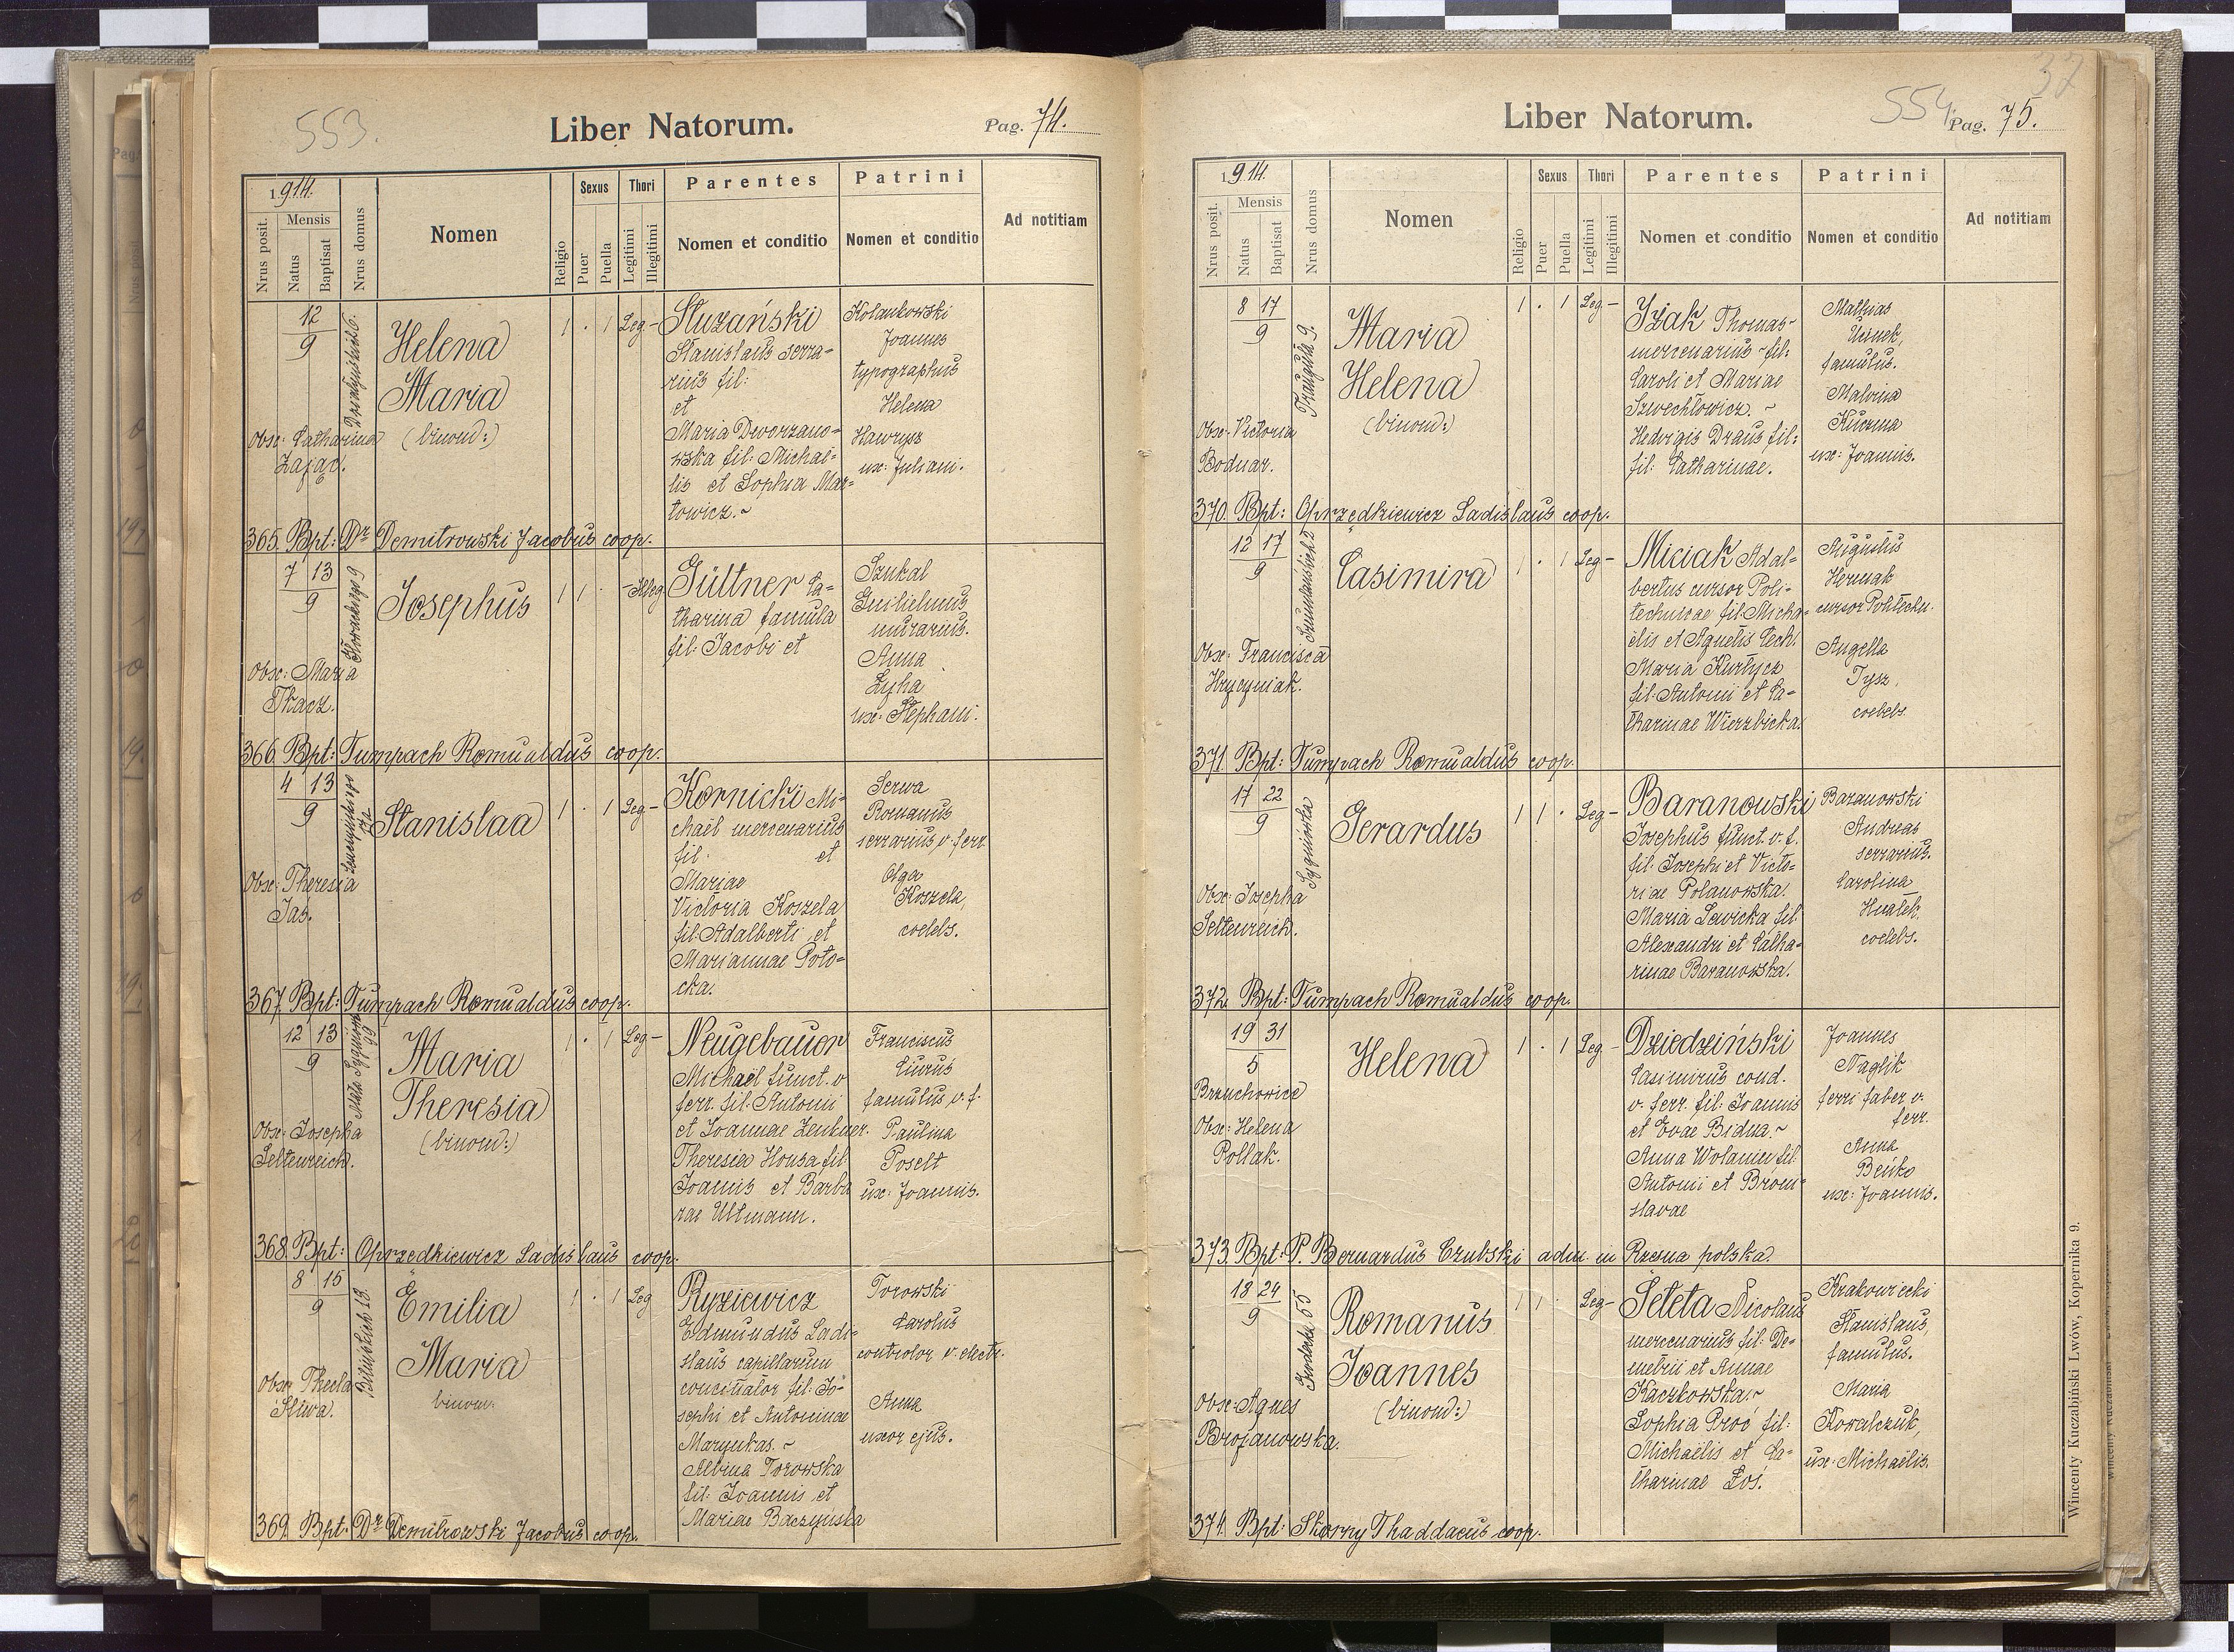 553.
Liber Natorum.
Pag. 74.
1914.
Nrus posit.
Mensis
Natus
Baptisat
Nrus domus
Nomen
Religio
Sexus
Puer
Puella
Thori
Legitimi
Illegitimi
Parentes
Nomen et conditio
Patrini
Nomen et conditio
Ad notitiam
12
9
Helena
Maria
(binom:)
Obse: Catharina
Zając.
1 . 1 Leg -
Słuzański
Stanislaus serra=
rius fil:
et
Maria Dworzano=
wska fil: Michae=
lis et Sophia Mar=
towicz. ~
Kolankowski
Joannes
typographus
Helena
Hawrysz
ux: Juliani.
365. Bpt: Dr Demitrowski Jacobus coop.
7 13
9
Josephus
Obse: Maria
Tkacz.
1 1 . - Illeg
Güttner Ca=
tharina famula
fil: Jacobi et
Szukal
Guilielmus
murarius.
Anna
Zyha
ux: Stephani.
366. Bpt: Tumpach Romualdus coop.
4 13
9
Stanislaa
Obse: Theresia
Jaś.
1 . 1 Leg -
Kornicki Mi=
chael mercenarius
fil. et
Mariae
Victoria Koszela
fil: Adalberti et
Mariannae Poto=
cka.
Serwa
Romanus
serrarius v. ferr.
Olga
Koszela,
coelebs.
367. Bpt: Tumpach Romualdus coop.
12 13
9
Maria
Theresia
(binom:)
Obse: Josepha
Seltenreich.
1 . 1 Leg -
Neugebauer
Michael funct. v
ferr. fil: Antonii
et Joannae Zenkner.
Theresia Housa fil
Joannis et Barba
rae Ullmann.
Franciscus
famulus v. f.
Paulina
Poselt
ux: Joannis.
368. Bpt: Oprzędkiewicz Ladislaus coop.
8 15
9
Bilińskich 18.
Emilia
Maria
binom:
Obse: Thecla
Śliwa.
1 . 1 Leg
Ryziewicz
Edmundus Ladi=
slaus capillarum
concinator fil: Jo=
sephi et Antoninae
Marynkas. ~
Albina Torowska
fil: Joannis et
Mariae Baczyńska
Torowski
Carolus
controlor v. electr.
Anna
uxor ejus.
369. Bpt. Dr Demitrowski Jacobus coop.
37
Liber Natorum.
554.
Pag. 75.
1914.
Nrus posit.
Mensis
Natus
Baptisat
Nrus domus
Nomen
Religio
Sexus
Puer
Puella
Thori
Legitimi
Illegitimi
Parentes
Nomen et conditio
Patrini
Nomen et conditio
Ad notitiam
8 17
9
Traugutta 9.
Maria
Helena
(binom:)
Obse: Victoria
Bodnar.
1 . 1 Leg -
Izak Thomas ~
mercenarius ~ fil:
Caroli et Mariae
Szwechłowicz. ~
Hedvigis Draus fil:
fil: Catharinae.
Mathias
famulus.
Malvina
Kuczma
ux: Joannis.
370. Bpt: Oprzędkiewicz Ladislaus coop.
12 17
9
Casimira
Obse: Francisca
Hrycyniak.
1 . 1 Leg -
Miciak Adal=
bertus cursor Poli=
technicae fil: Micha=
elis et Agnetis Cech.
Maria Kurtycz
fil: Antonii et Ca=
tharinae Wierzbicka.
Augustus
Hermak
cursor Politechn.
Angella
Tysz,
coelebs.
371. Bpt: Tumpach Romualdus coop.
17 22
9
Sygniówka
Gerardus
Obse: Josepha
Seltenreich.
1 1 . Leg -
Baranowski
Josephus funct. v. f.
fil: Josephi et Victo=
riae Polanowska.
Maria Lewicka fil
Alexandri et Catha=
rinae Baranowska.
Baranowski
Andreas
serrarius.
Carolina
Hualek,
coelebs.
372. Bpt: Tumpach Romualdus coop.
19 31
5
Brzuchowice
Helena
Obse: Helena
Pollak.
1 . 1 Leg -
Dziedziński
Casimirus cond.
v. ferr. fil: Joannis
et Evae Bidua. ~
Anna Wolanin fil:
Antonii et Broni=
slavae
Joannes
Naglik
ferri faber v.
ferr.
Anna
Beńko
ux: Joannis.
373. Bpt: P. Bernardus Czubski adm. in Rzesna polska.
18 24
9
Grodecka 55
Romanus
Joannes
(binom:)
Obse: Agnes
Brojanowska.
1 1 Leg -
Seteta Nicolaus
mercenarius fil: De=
metrii et Annae
Kaczkowska. ~
Sophia Proć fil:
Michaelis et Ca=
tharinae Łoś.
Krakowiecki
Stanislaus,
famulus.
Maria
Kowalczuk,
ux: Michaelis.
374. Bpt: Skorny Thaddaeus coop.
Wincenty Kuczabiński Lwów, Kopernika 9.